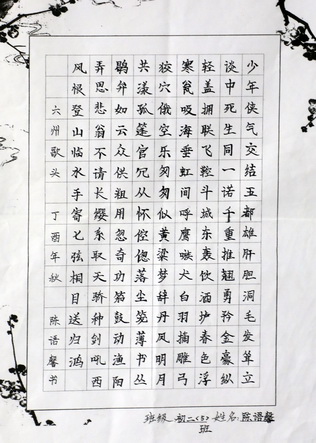 少年侠气交结五都雄肝胆洞毛发耸立
谈中死生同一诺千重推翘勇矜金豪纵
轻盖拥联飞鞚斗城东轰饮酒垆春色浮
寒瓮吸海垂虹间呼鹰嗾犬白羽摘雕弓
狡穴俄空乐匆匆似黄粱梦辞丹凤明月
共漾孤蓬官冗从怀倥偬落尘笼簿书丛
鹖弁如云众供粗用忽奇功笳鼓动渔阳
弄思悲翁不请长缨系取天骄种剑吼西
风根登山临水手寄七弦相目送归鸿
六州歌头 丁酉年秋 陈语馨书
班级:初二(5)班 姓名:陈语馨